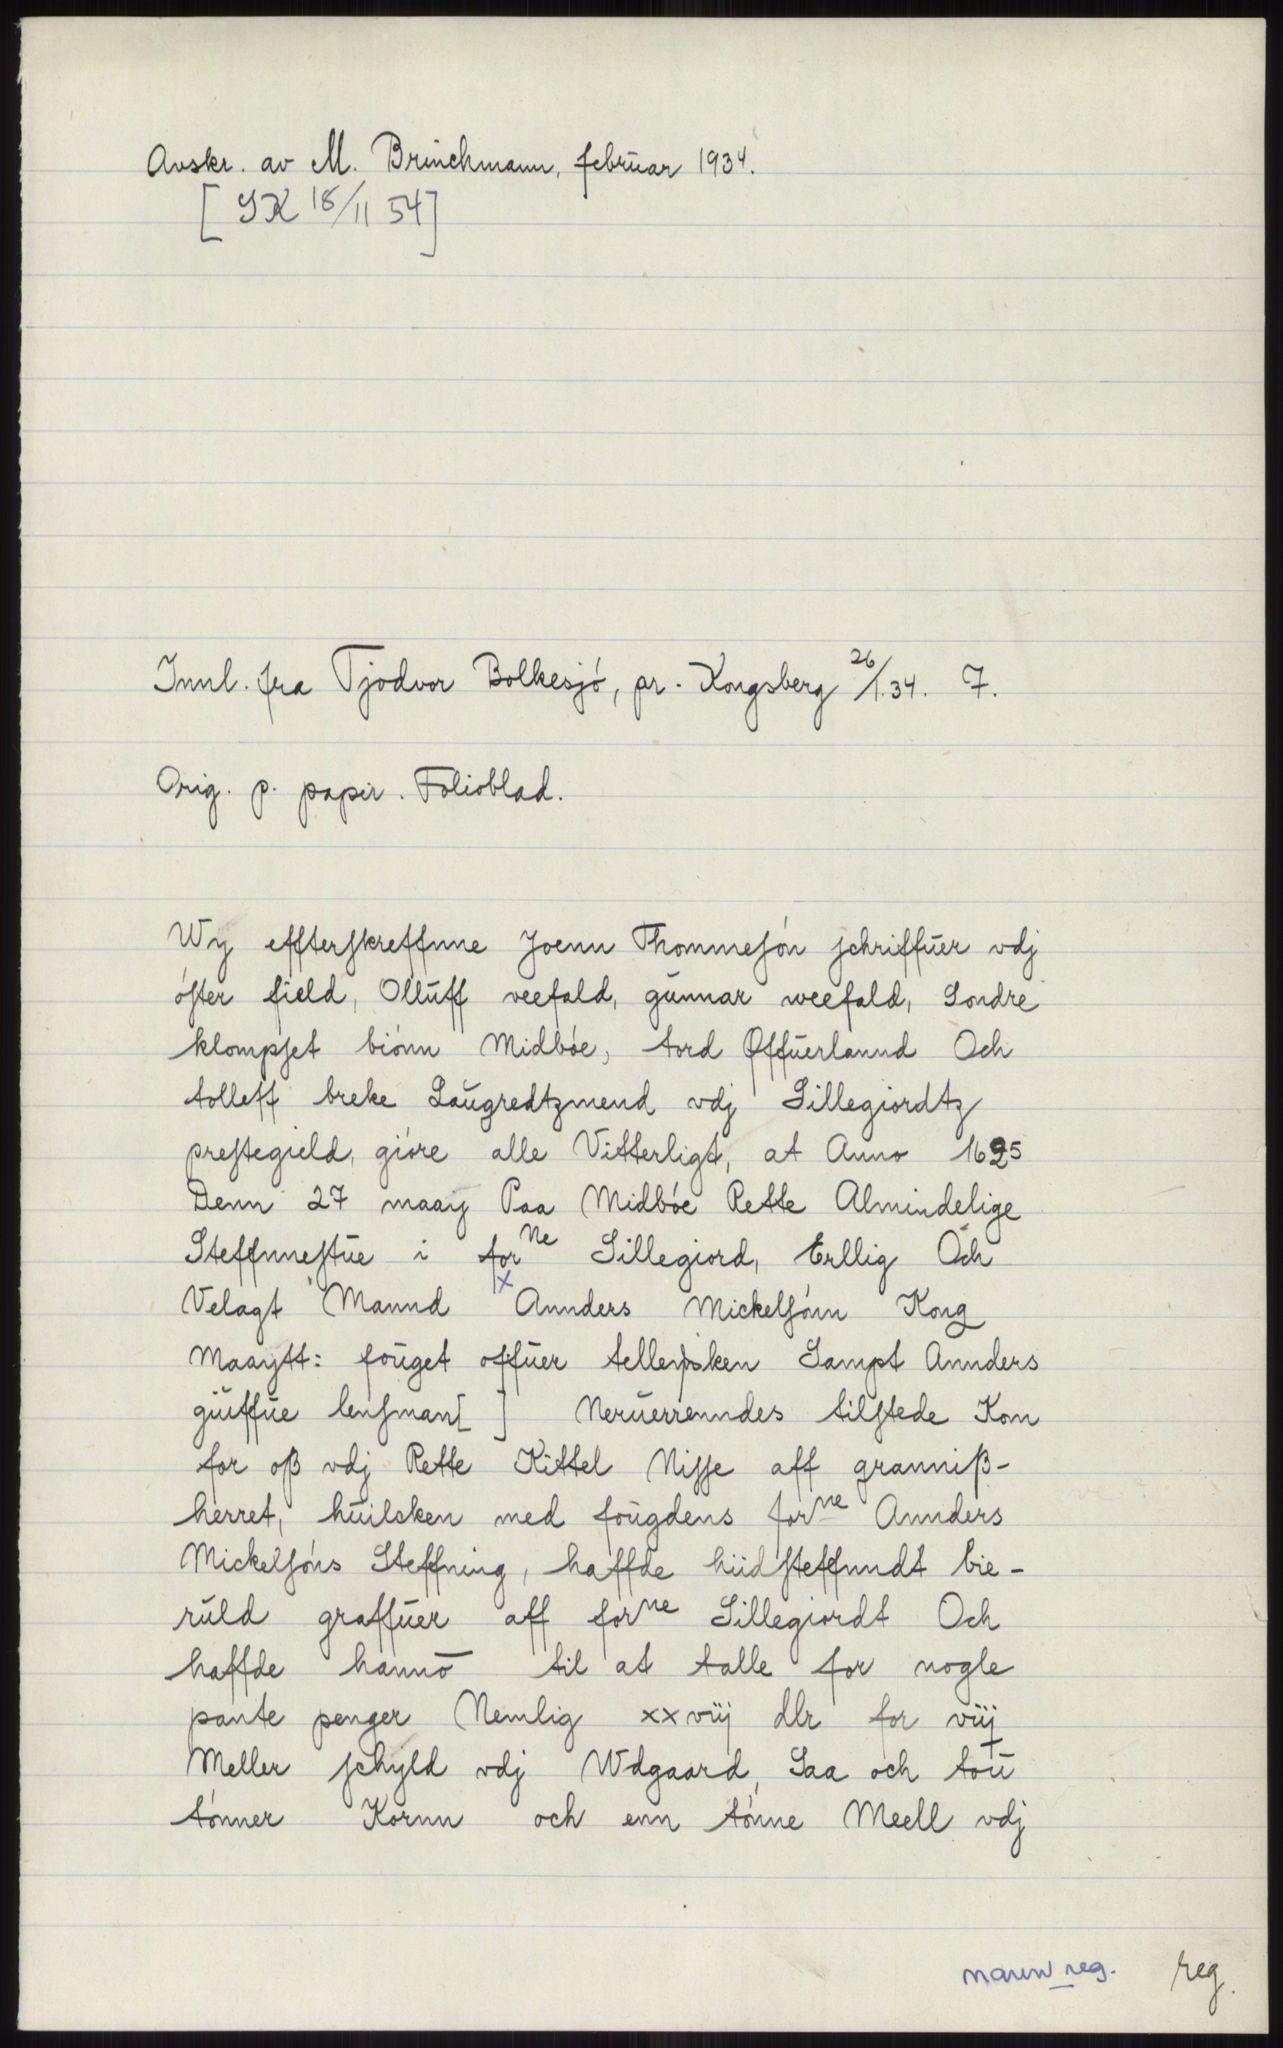 Avskr. av M. Brinchmann, februar 1934.
[SK 18/11 54]
Innl. fra Tjodvor Bolkesjó, pr. Kongsberg 26/1.34. 7.
Orig. p. papir. Folioblad.
Wy effterskreffnne Joenn Thommesón schriffuer vdj
óster field, Olluff veefald, gunnar weefald, Sondre
klompset biónn Midbóe, tord Offuerlannd Och
tolleff breke Laugredtzmend vdj Sillegiordtz
prestegield, gióre alle Vitterligt, at Anno 1625
Denn 27 maay Paa Midbóe Rette Almindelige
Steffnnestue i forne Sillegiord, Erllig Och
Velagt Mannd x Annders Mickelsónn Kong
Maaytt: fouget offuer tellepsken Sampt Annders
guiffue lensman[ ] Neruerrenndes tilstede Kom
for oß vdj Rette Kittel Nisse aff granniß-
herret, huilcken med fougdens forne Annders
Mickelsóns Steffning, haffde hiidsteffnndt bie-
ruld graffuer aff forne Sillegiordt Och
haffde hannō til at talle for nogle
pante penger Nemlig xxviij dlr for viij
Meller schyld vdj Wdgaard, Saa och tou
tónner Kornn och enn tónne Meell vdj
navn reg. reg.